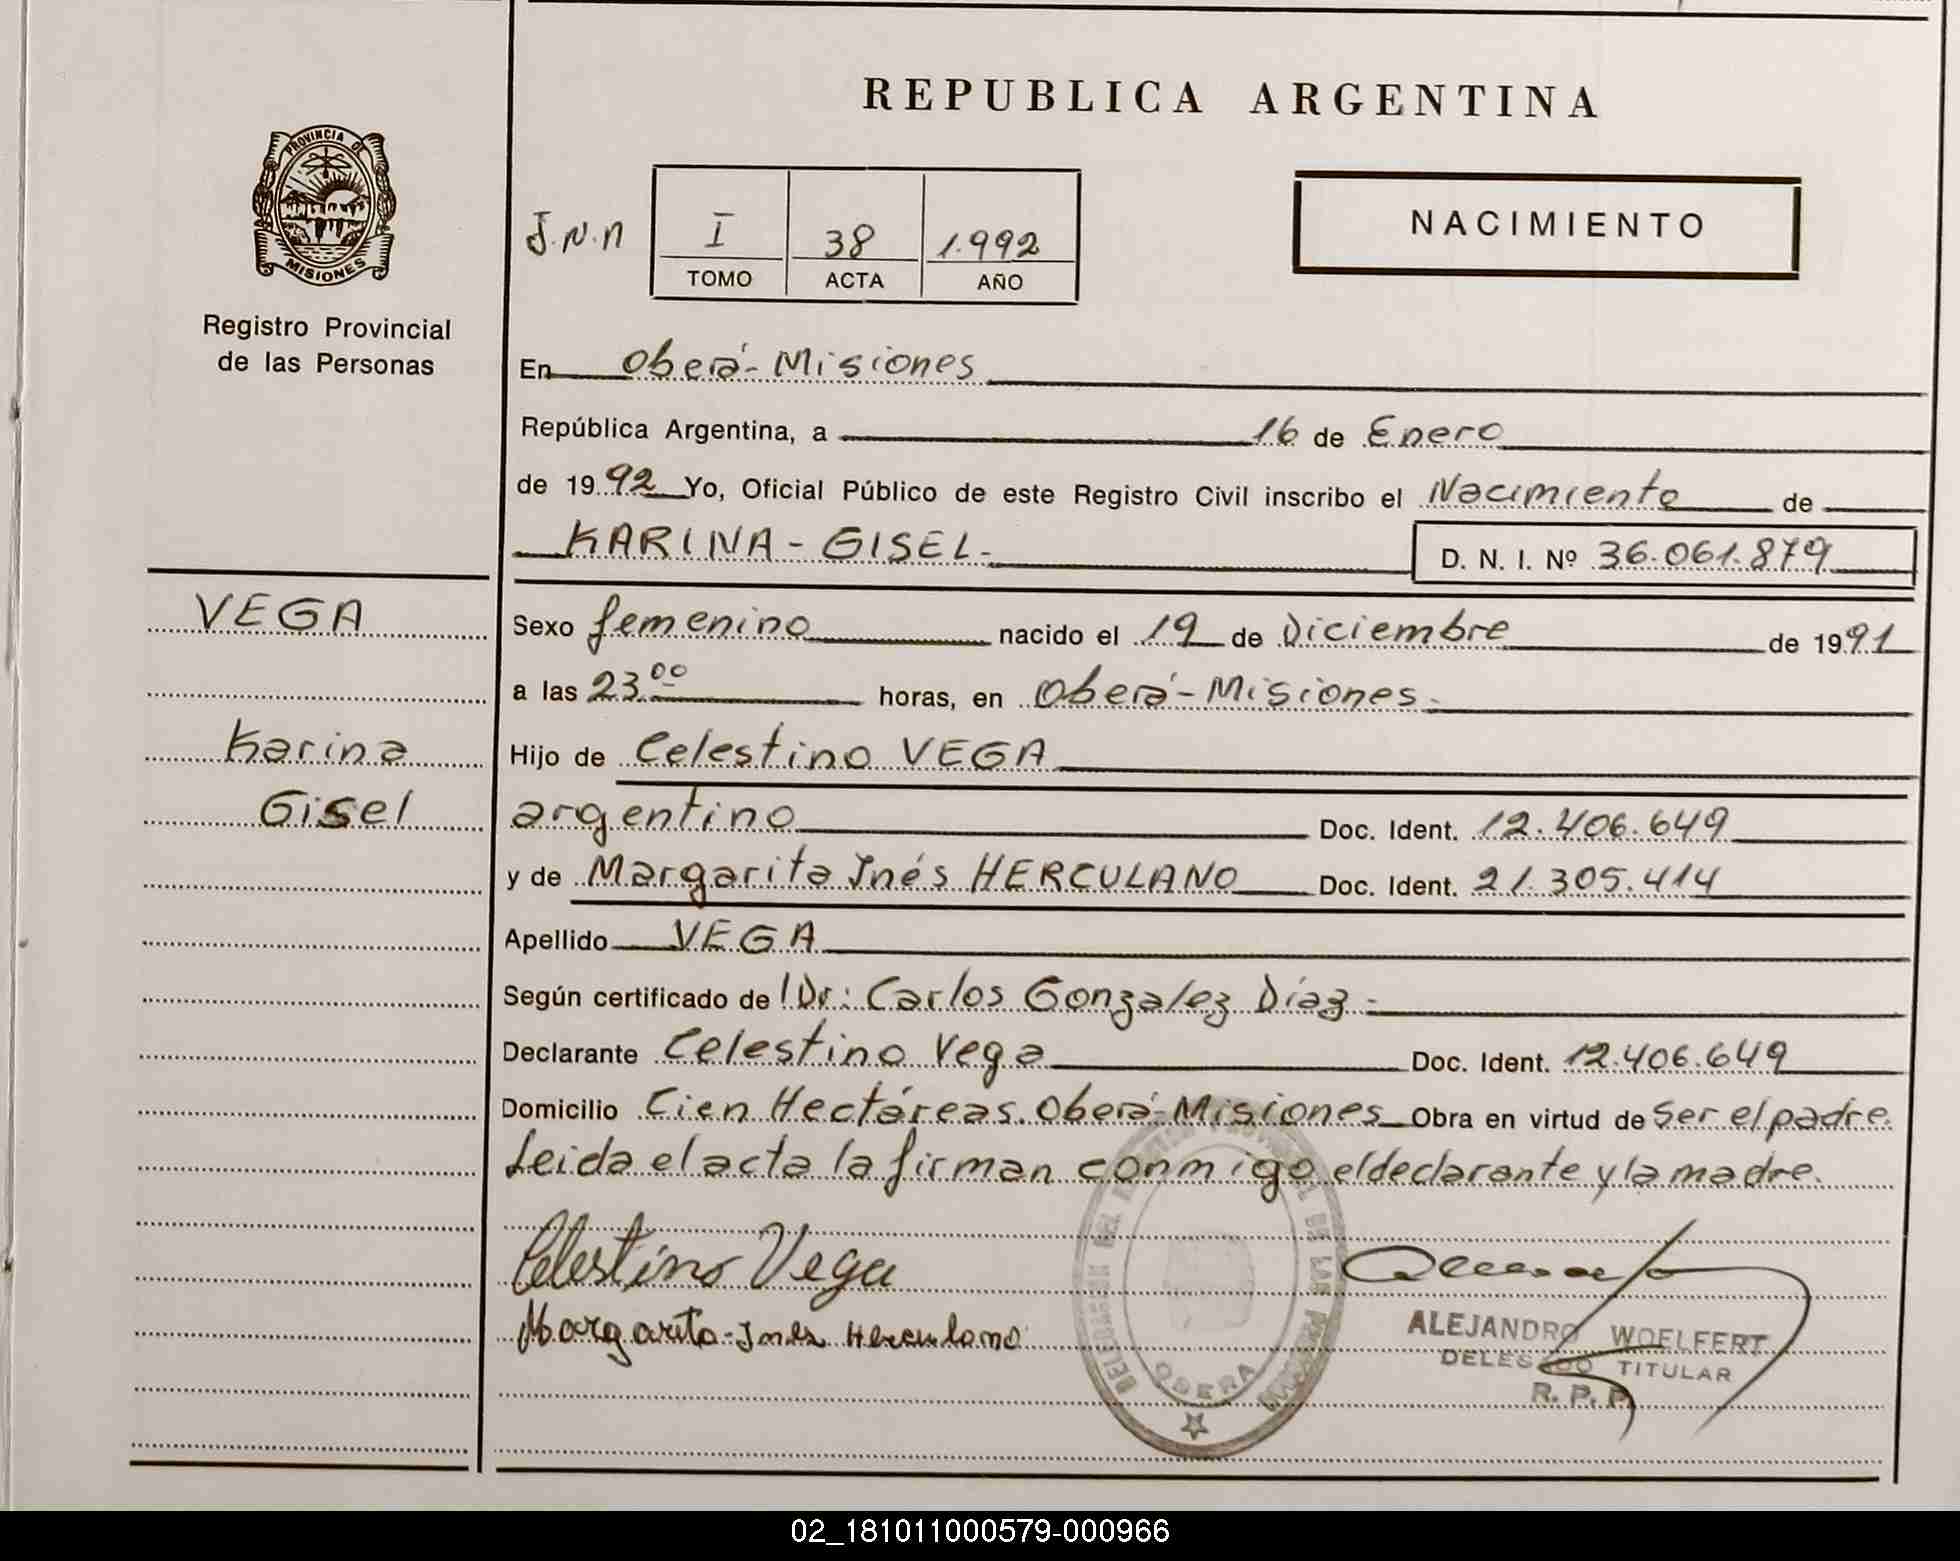 REPUBLICA ARGENTINA
PROVINCIA DE
MISIONES
Registro Provincial
de las Personas
J.N.n
I 38 1.992
TOMO ACTA AÑO
NACIMIENTO
En Oberá-Misiones
República Argentina, a 16 de Enero
de 1992 Yo, Oficial Público de este Registro Civil inscribo el Nacimiento de
KARINA-GISEL.
D. N. I. Nº 36.061.879
VEGA
Karina
Gisel
Sexo femenino nacido el 19 de Diciembre de 1991
a las 23.00 horas, en Oberá-Misiones.
Hijo de Celestino VEGA
argentino Doc. Ident. 12.406.649
y de Margarita Inés HERCULANO Doc. Ident. 21.305.414
Apellido VEGA
Según certificado de Dr: Carlos Gonzalez Díaz.
Declarante Celestino Vega Doc. Ident. 12.406.649
Domicilio Cien Hectáreas. Oberá-Misiones Obra en virtud de ser el padre.
Leida el acta la firman conmigo el declarante y la madre.
Celestino Vega
Margarita-Ines Herculano
DELEGACION DEL DE LAS
OBERA
ALEJANDRO WOELFERT
DELEGADO TITULAR
R. P. P.
02_181011000579-000966